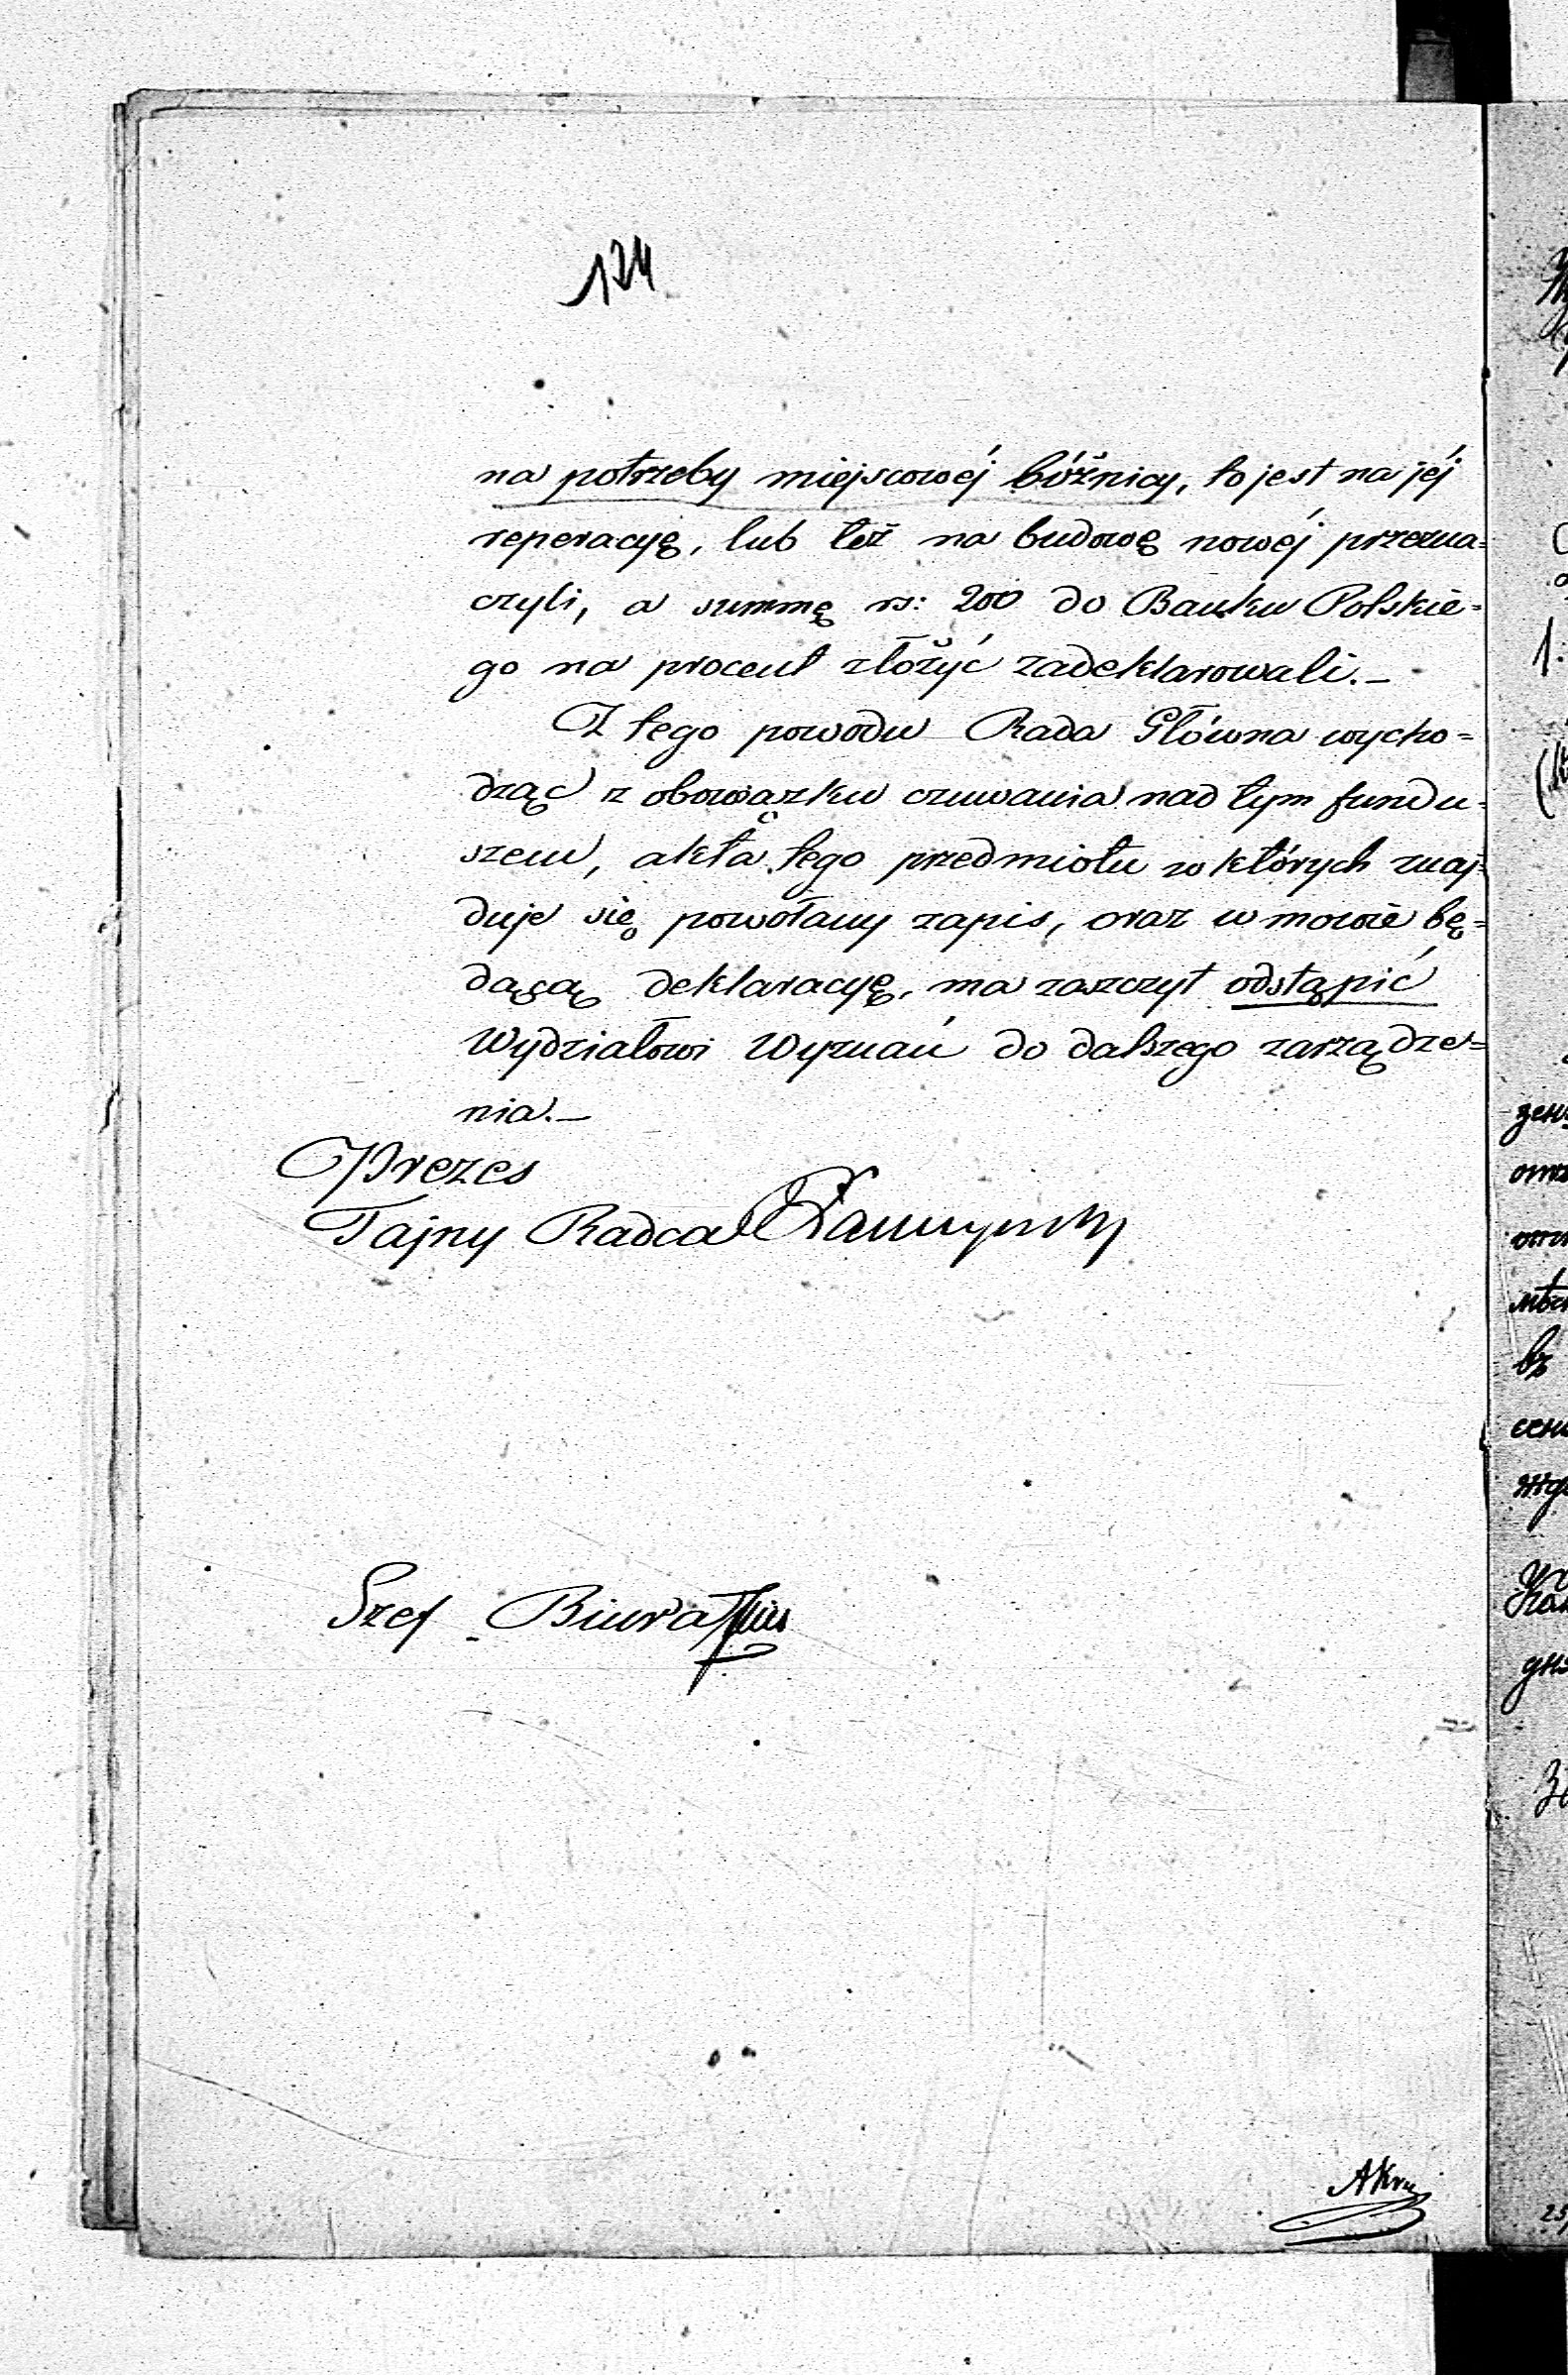 124
na potrzeby miejscowéj bóżnicy, to jest na jéj
reperacyę, lub też na budowę nowéj przezna=
czyli, a summę rs: 200 do Banku Polskie=
go na procent złożyć zadeklarowali.—
Z tego powodu Rada Główna wycho=
dząc z obowiązku czuwania nad tym fundu=
szem, akta tego przedmiotu w których znaj=
duje się powołany zapis, oraz w mowie bę=
dącą deklaracyę, ma zaszczyt odstąpić
Wydziałowi Wyznań do dalszego zarządze=
nia.—
Prezes
Tajny Radca
Szef Biura